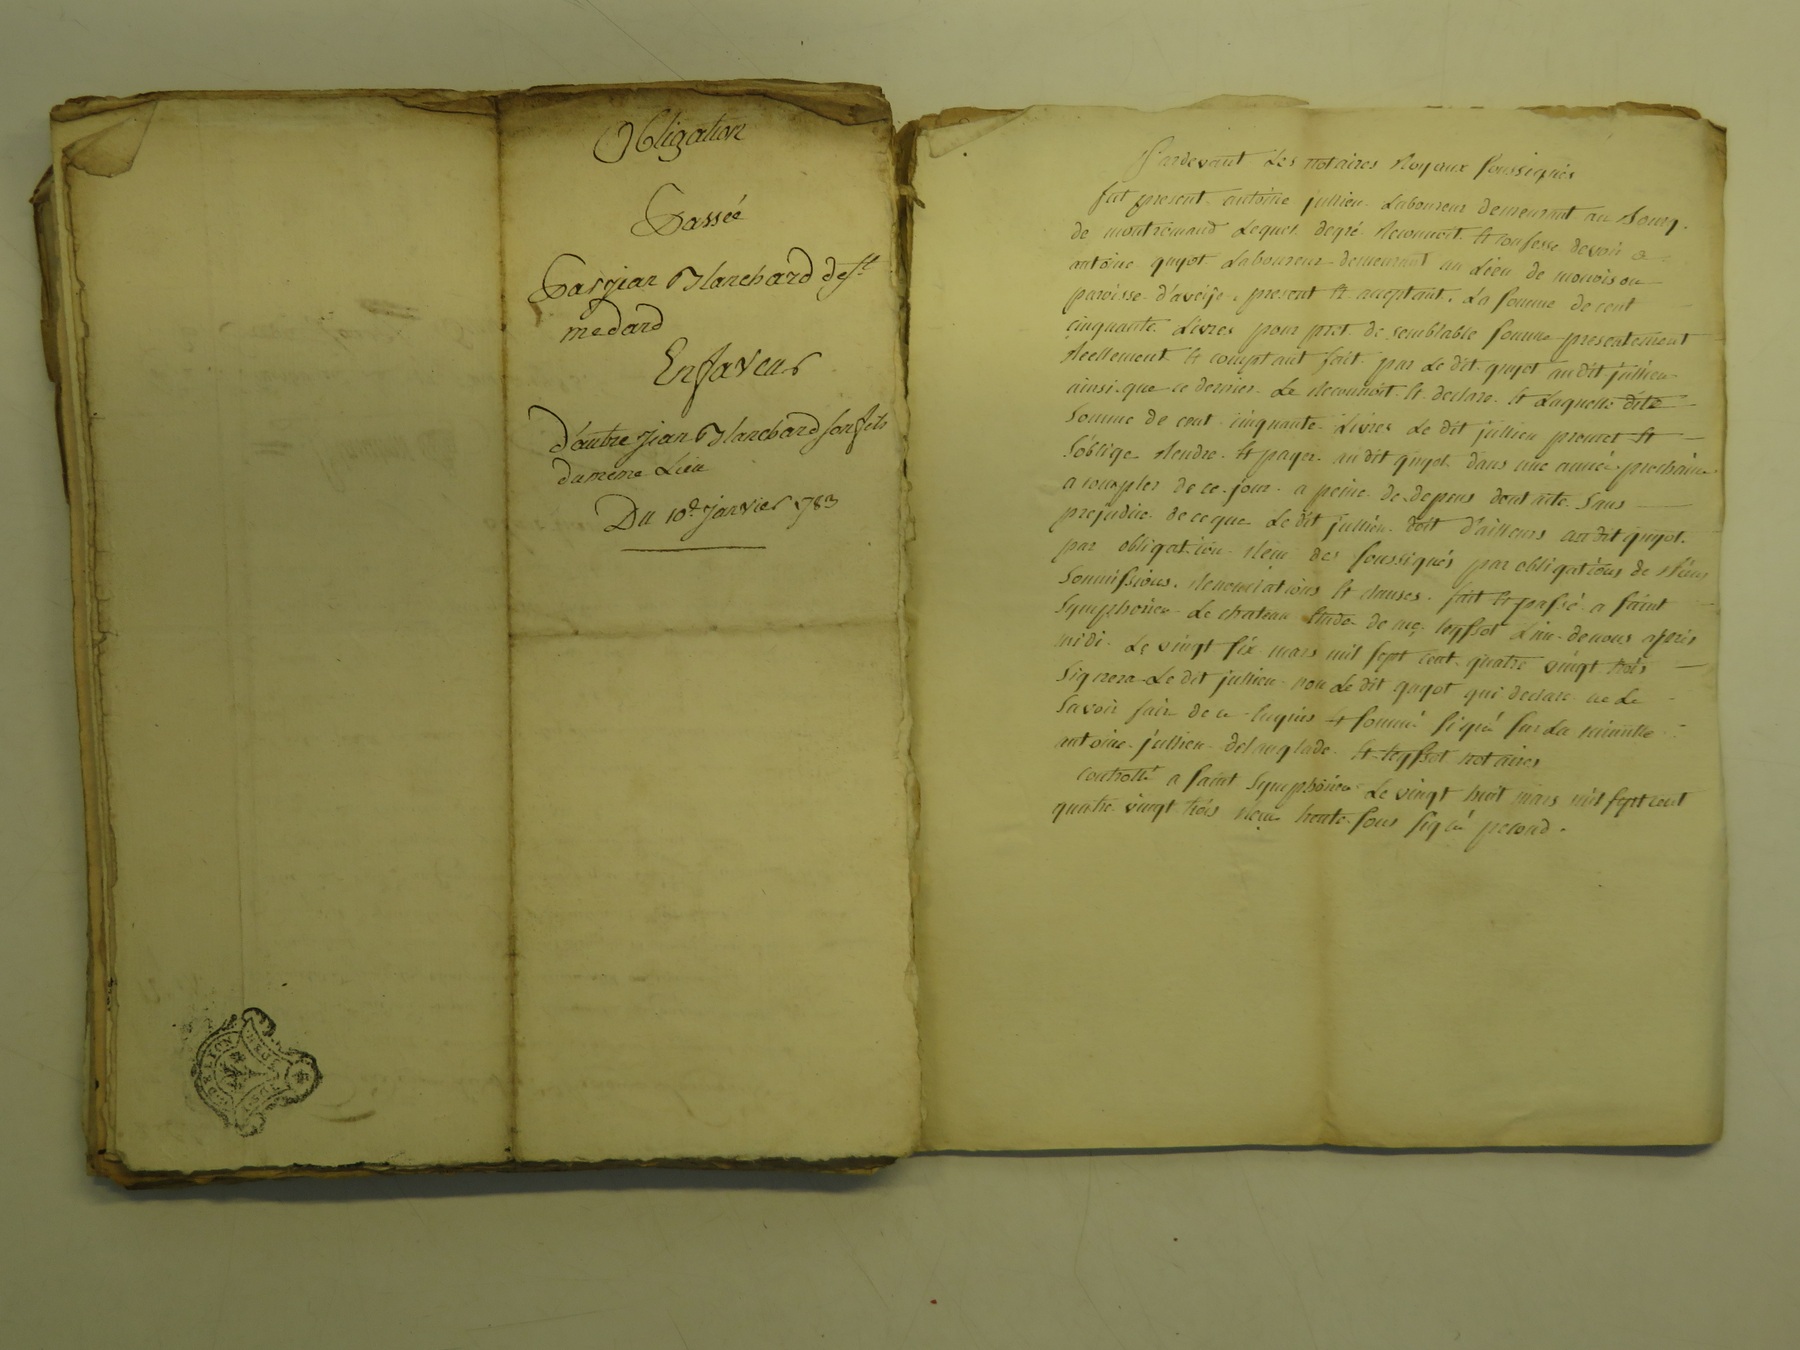 Obligation
Passée
Par jean Blanchard de st
medard
En faveur
d'autre jean Blanchard son fils
du meme Lieu
Du 10e janvier 1783
DE LYON
Pardevant Les notaires Royaux soussignés
fut present antoine jullien Laboureur demeurant au Bourg
de montromand Lequel de gré Reconnoit et confesse devoir a
antoine guyot Laboureur demeurant au Lieu de
paroisse d'aveize present et acceptant La somme de cent
cinquante Livres pour pret de semblable somme presentement
Reellement et comptant fait par Le dit guyot au dit jullien
ainsi que ce dernier Le Reconnoit et declare et Laquelle dite
somme de cent cinquante Livres Le dit jullien promet et
s'oblige Rendre et payer au dit guyot dans une année prochaine
a compter de ce jour a peine de depens dont acte sans
prejudice de ce que Le dit jullien doit d'ailleurs au dit guyot
par obligation Reçu des soussignés par obligations de Biens
soumissions Renonciations et clauses fait et passé a saint
symphorien Le chateau Etude de me teyssot L'un de nous après
midi Le vingt six mars mil sept cent quatre vingt trois
signera Le dit jullien non Le dit guyot qui declare ne Le
savoir fair de ce Requis et sommé signé sur La minutte
antoine jullien delanglade et teyssot notaires
controllé a saint symphorien Le vingt huit mars mil sept cent
quatre vingt trois Reçu trente sous signé